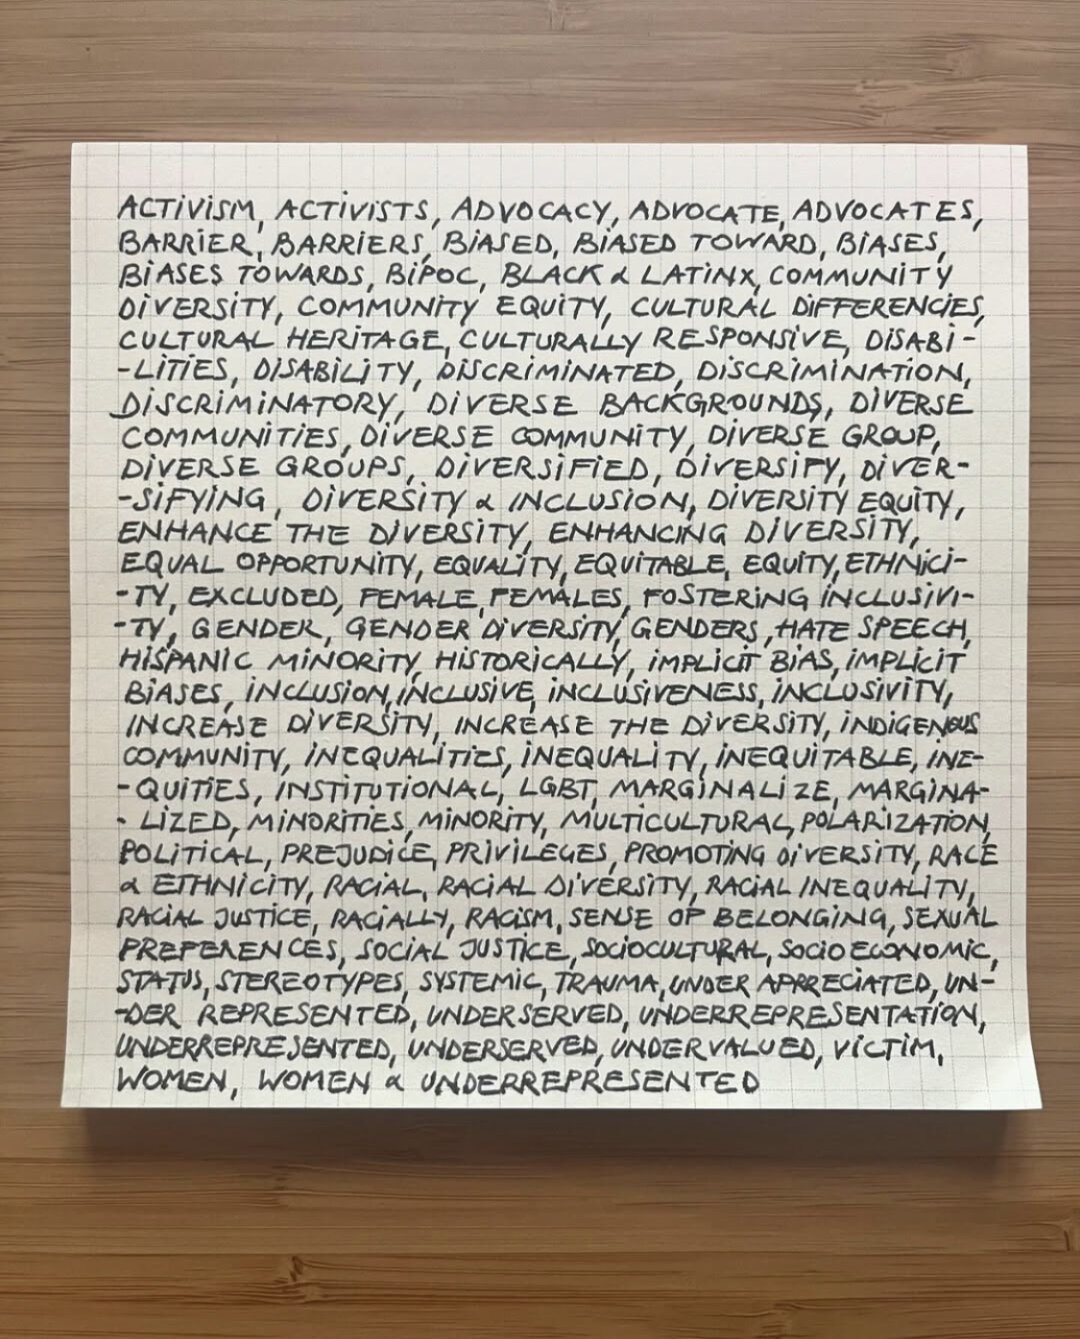 ACTIVISM, ACTIVISTS, ADVOCACY, ADVOCATE, ADVOCATES,
BARRIER, BARRIERS, BIASED, BIASED TOWARD, BIASES,
BIASES TOWARDS, BIPOC, BLACK & LATINX, COMMUNITY
DIVERSITY, COMMUNITY EQUITY, CULTURAL DIFFERENCIES,
CULTURAL HERITAGE, CULTURALLY RESPONSIVE, DISABI-
-LITIES, DISABILITY, DISCRIMINATED, DISCRIMINATION,
DISCRIMINATORY, DIVERSE BACKGROUNDS, DIVERSE
COMMUNITIES, DIVERSE COMMUNITY, DIVERSE GROUP,
DIVERSE GROUPS, DIVERSIFIED, DIVERSIFY, DIVER-
-SIFYING, DIVERSITY & INCLUSION, DIVERSITY EQUITY,
ENHANCE THE DIVERSITY, ENHANCING DIVERSITY,
EQUAL OPPORTUNITY, EQUALITY, EQUITABLE, EQUITY, ETHNICI-
-TY, EXCLUDED, FEMALE, FEMALES, FOSTERING INCLUSIVI-
-TY, GENDER, GENDER DIVERSITY, GENDERS, HATE SPEECH,
HISPANIC MINORITY, HISTORICALLY, IMPLICIT BIAS, IMPLICIT
BIASES, INCLUSION, INCLUSIVE, INCLUSIVENESS, INCLUSIVITY,
INCREASE DIVERSITY, INCREASE THE DIVERSITY, INDIGENOUS
COMMUNITY, INEQUALITIES, INEQUALITY, INEQUITABLE, INE-
-QUITIES, INSTITUTIONAL, LGBT, MARGINALIZE, MARGINA-
- LIZED, MINORITIES, MINORITY, MULTICULTURAL, POLARIZATION,
POLITICAL, PREJUDICE, PRIVILEGES, PROMOTING DIVERSITY, RACE
& ETHNICITY, RACIAL, RACIAL DIVERSITY, RACIAL INEQUALITY,
RACIAL JUSTICE, RACIALLY, RACISM, SENSE OF BELONGING, SEXUAL
PREFERENCES, SOCIAL JUSTICE, SOCIOCULTURAL, SOCIO ECONOMIC,
STATUS, STEREOTYPES, SYSTEMIC, TRAUMA, UNDER APPRECIATED, UN-
-DER REPRESENTED, UNDERSERVED, UNDERREPRESENTATION,
UNDERREPRESENTED, UNDERSERVED, UNDERVALUED, VICTIM,
WOMEN, WOMEN & UNDERREPRESENTED